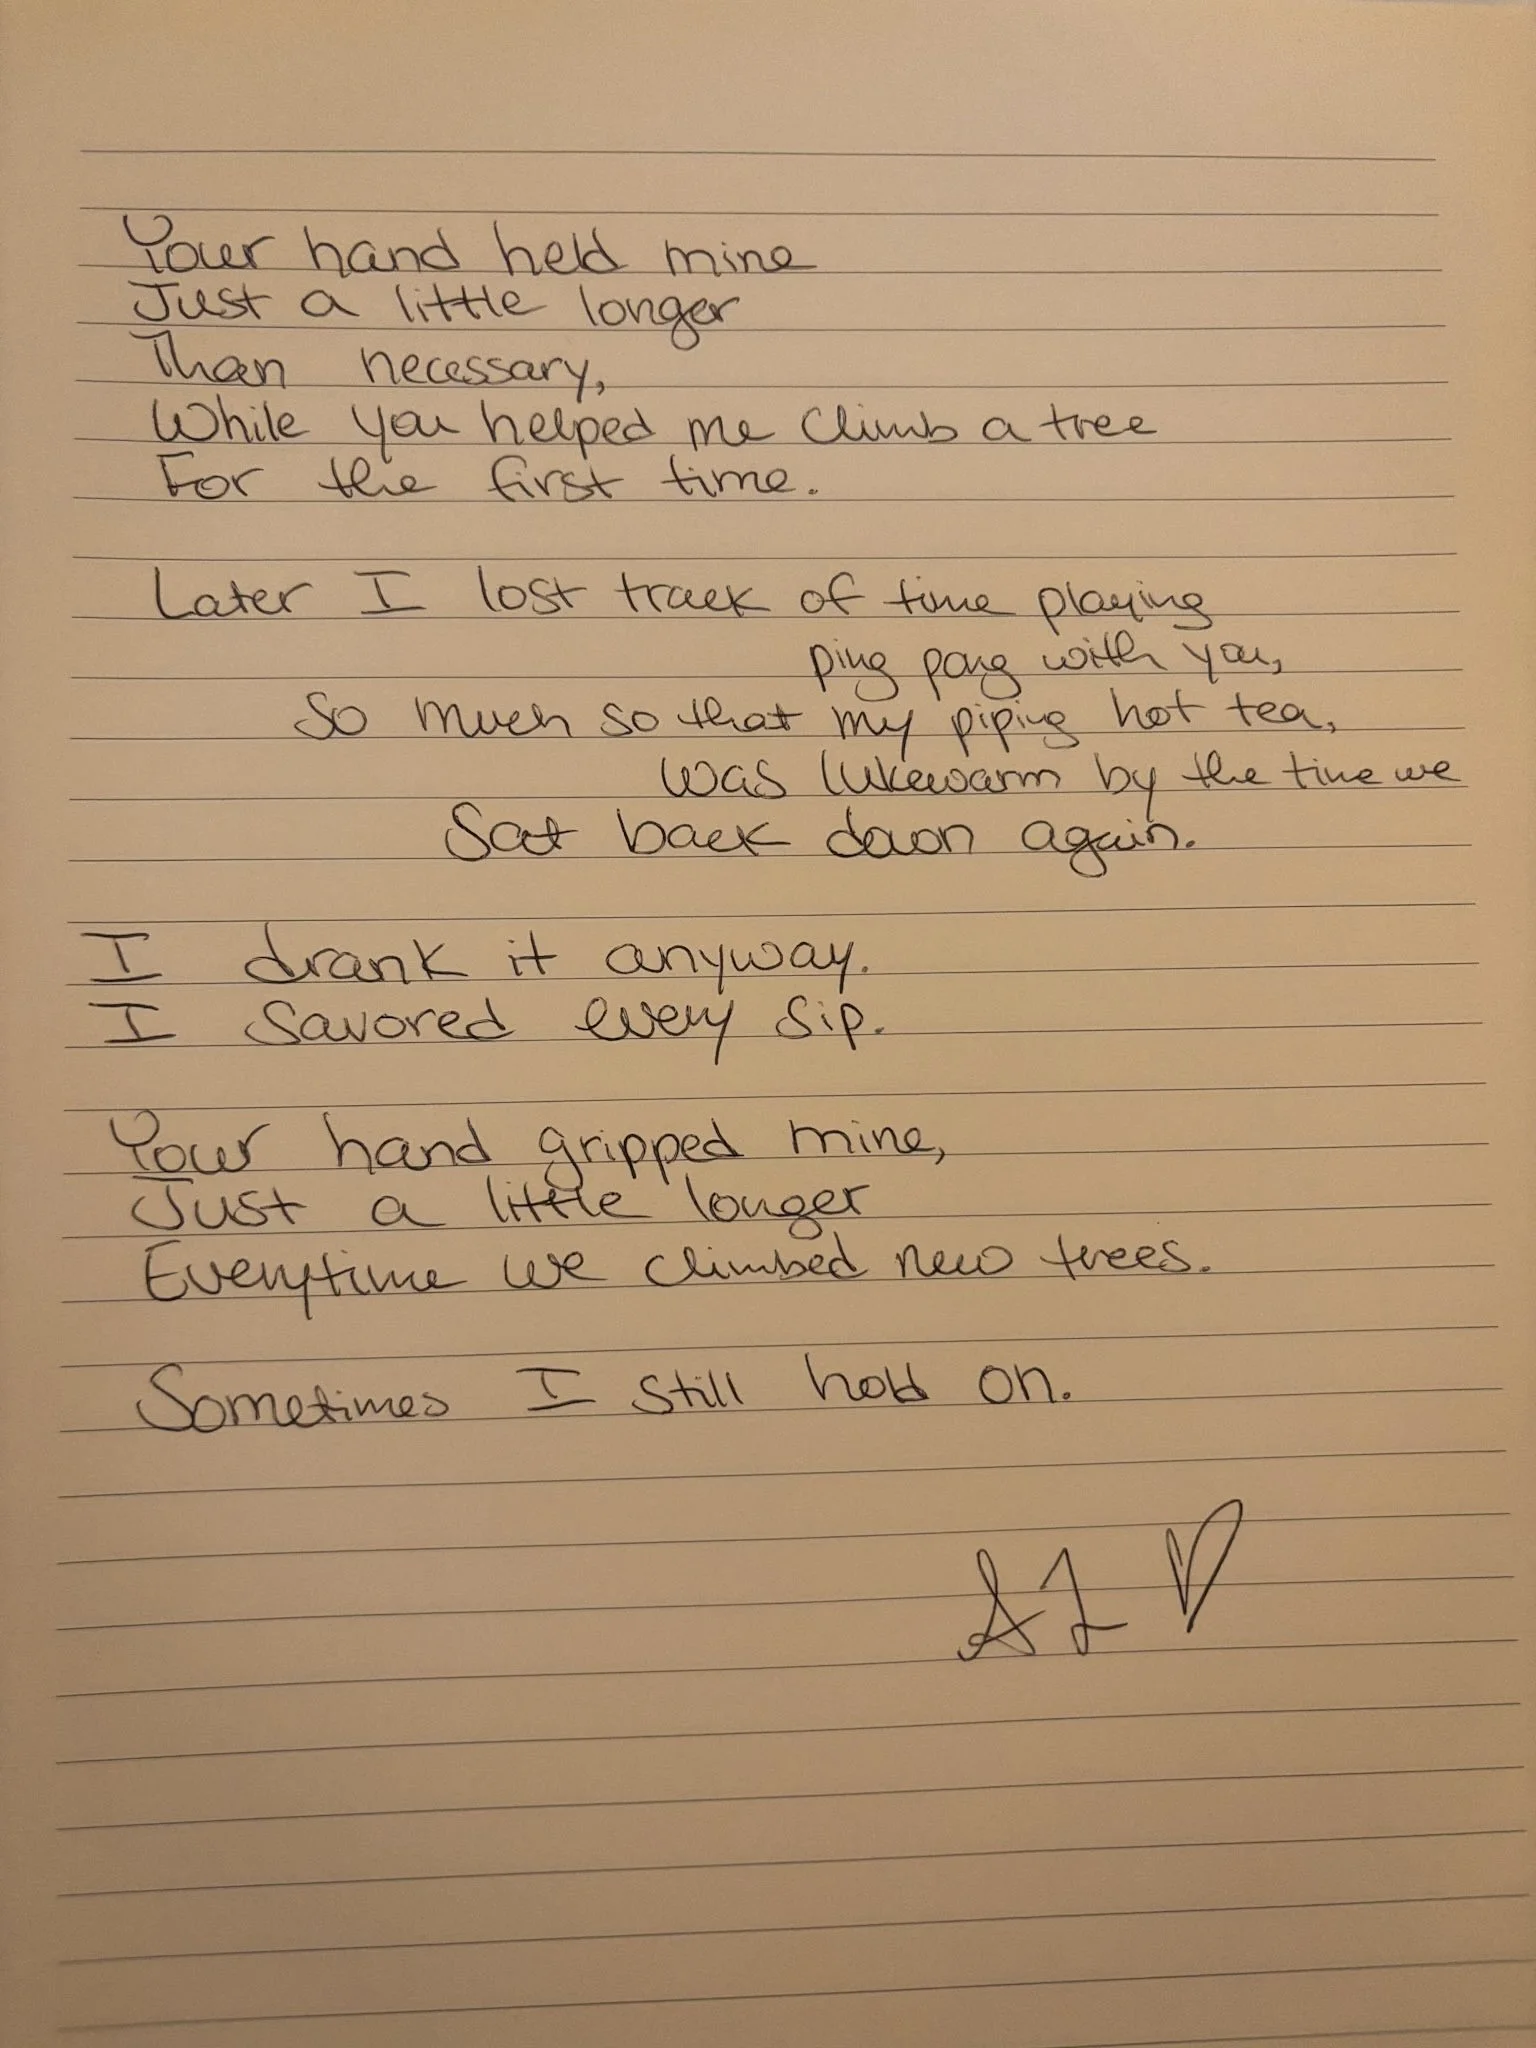 Your hand held mine
Just a little longer
Than necessary,
While you helped me climb a tree
For the first time.
Later I lost track of time playing
ping pong with you,
So much so that my piping hot tea,
was lukewarm by the time we
Sat back down again.
I drank it anyway.
I savored every sip.
Your hand gripped mine,
Just a little longer
Everytime we climbed new trees.
Sometimes I still hold on.